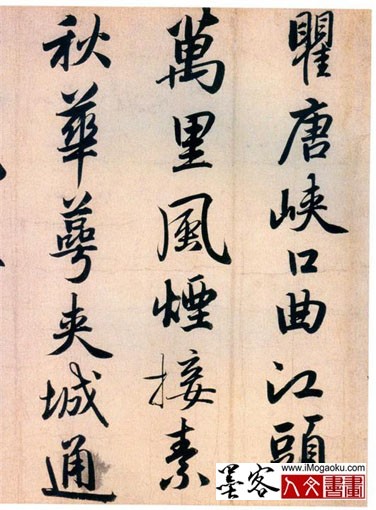 瞿唐峽口曲江頭
萬里風煙接素
秋華萼夾城通
www.iMogaoku.com
墨客
人文書畫